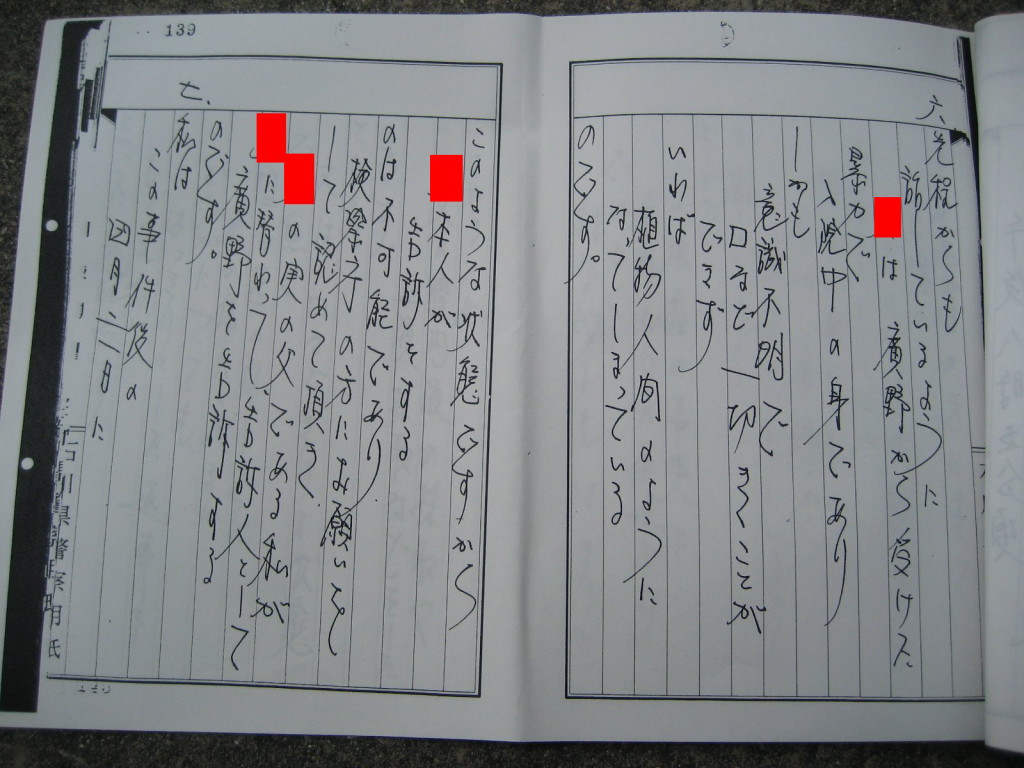 六、先程からも
訴しているように
は廣野から受けた
暴力で
入院中の身であり
しかも
意識不明で
口など一切きくことが
できず
いわば
植物人間のように
なってしまっている
のです。
139
このような状態ですから
本人が
告訴をする
のは不可能であり
検察庁の方にお願いを
して認めて頂き
の実の父である私が
に替わって、告訴人として
廣野を告訴する
のです。
七、
私は
この事件後の
四月二日に
石川県警察